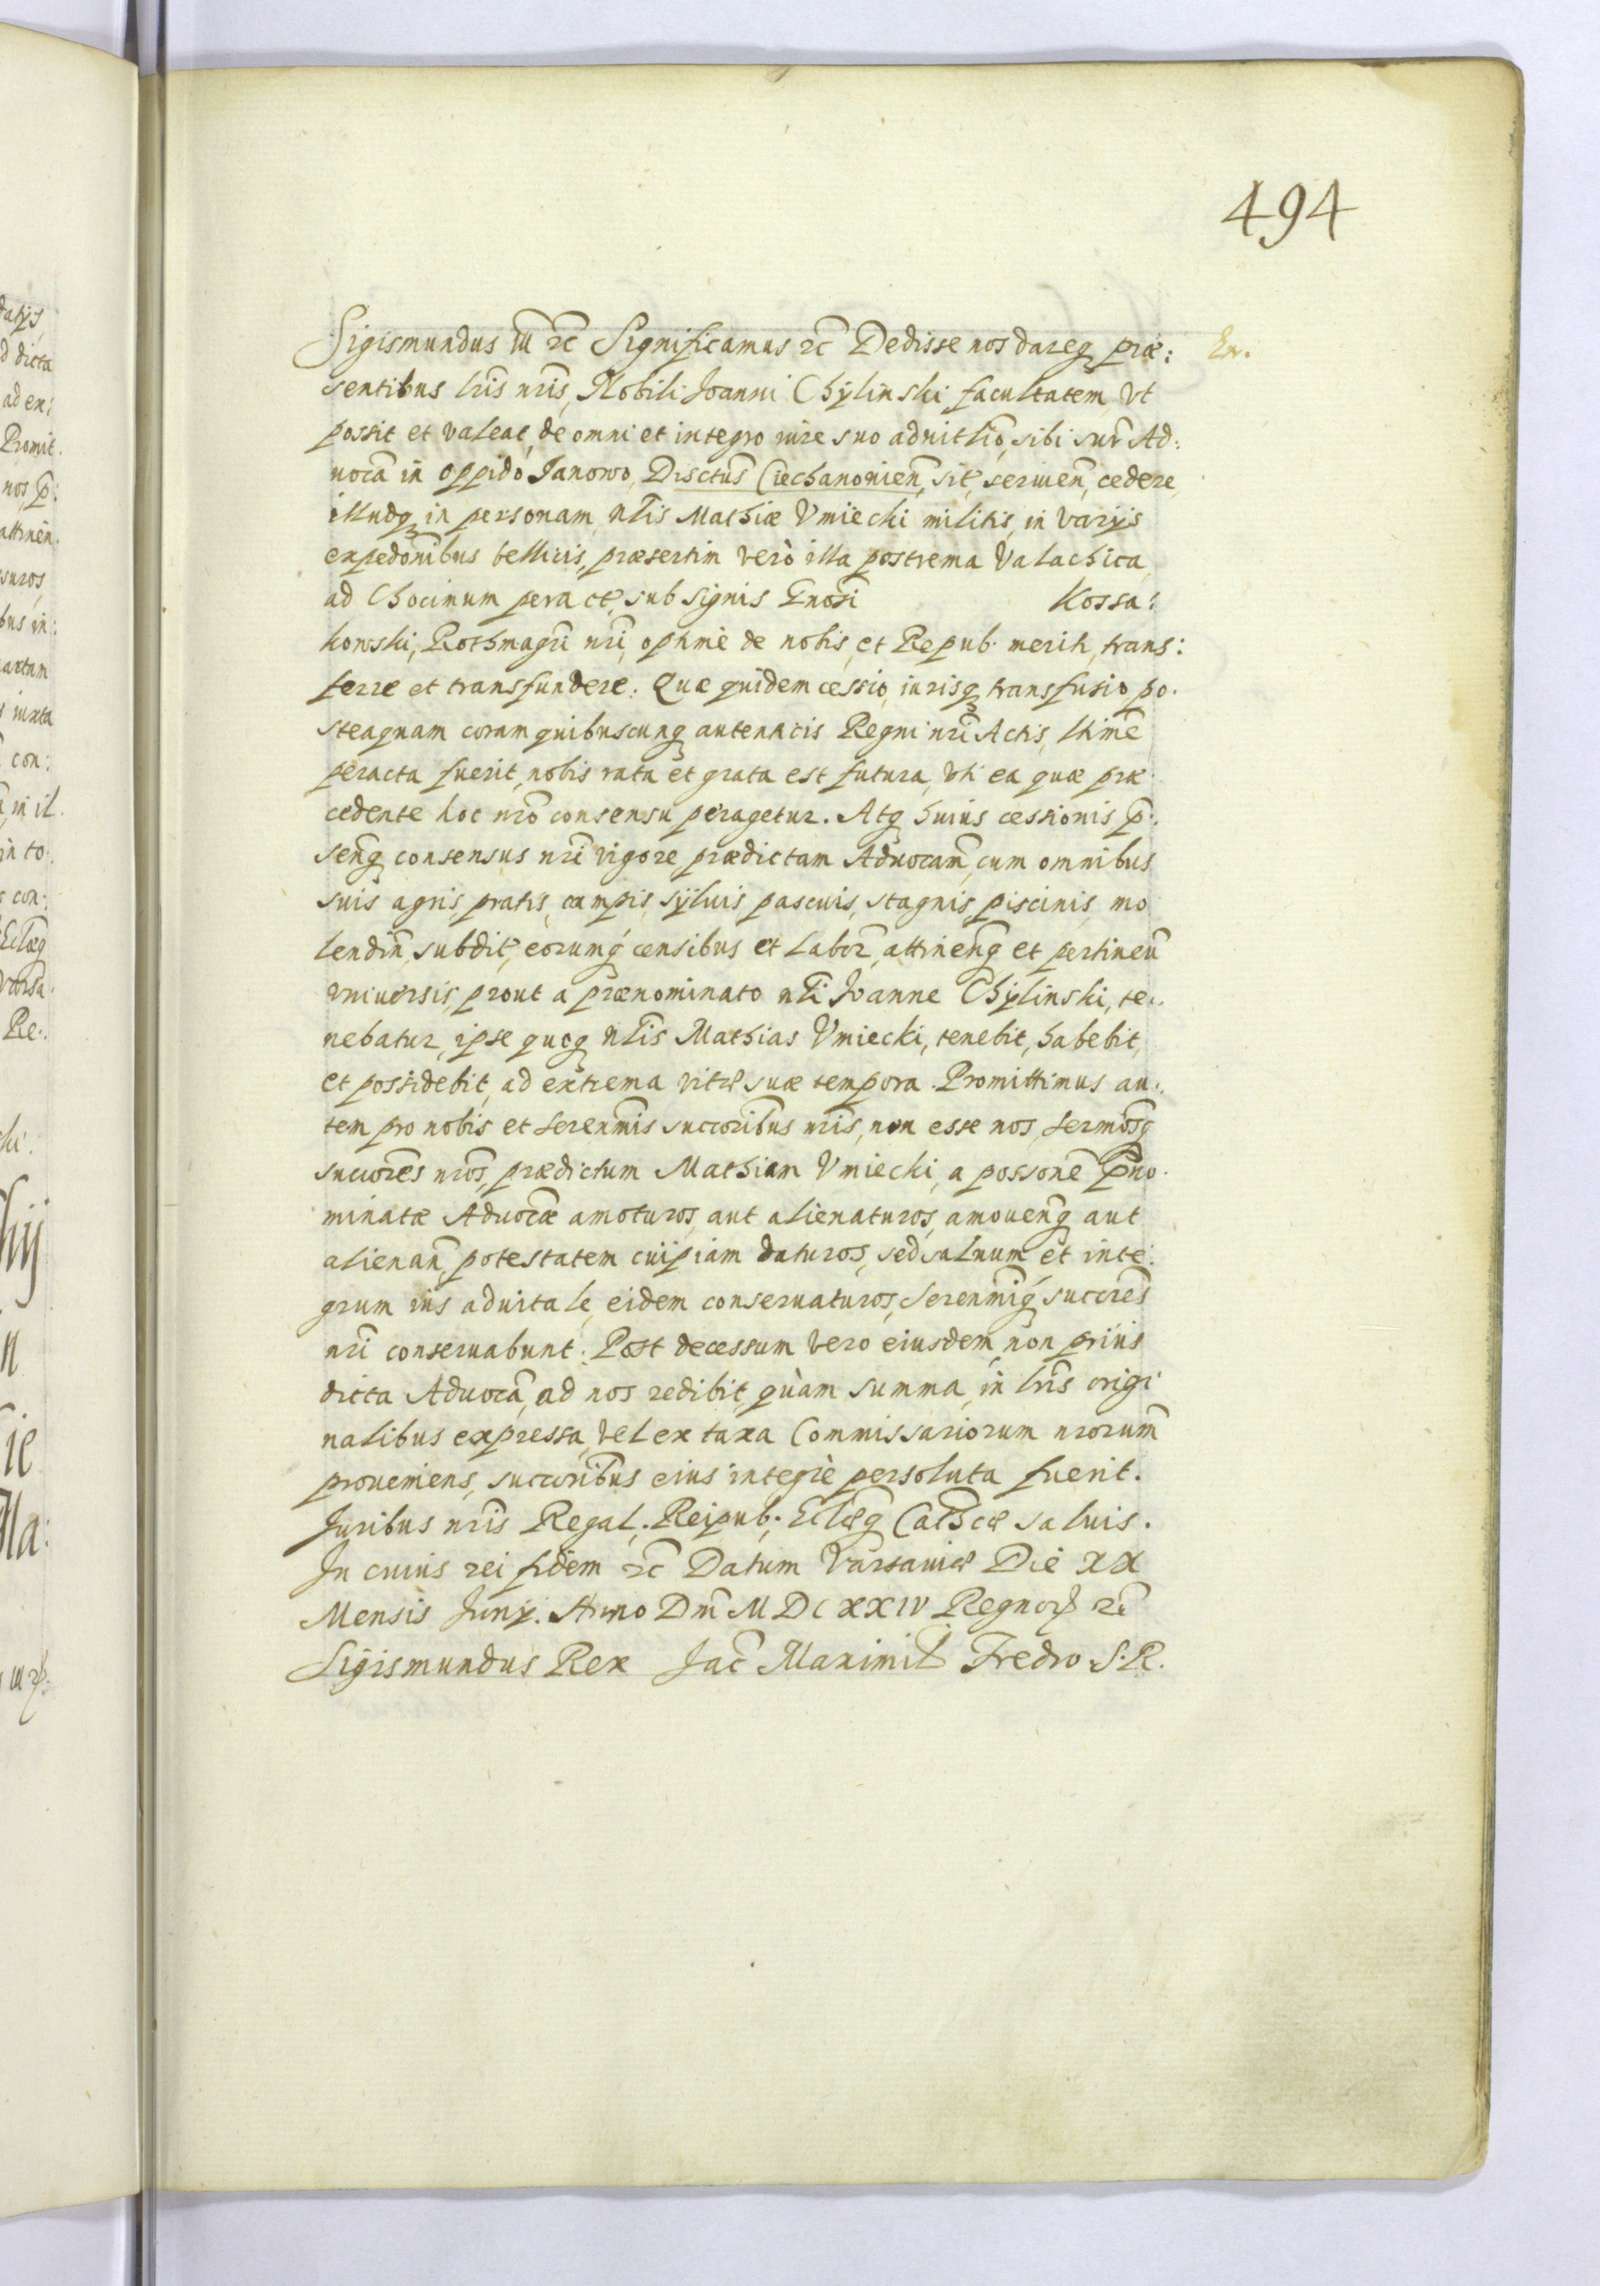 494
Sigismundus III etc Significamus etc Dedisse nos dareq præ: Ex.
sentibus lris nris, Nobili Joanni Chÿlinski facultatem vt
possit et valeat, de omni et integro iure suo aduitlio, sibi sup Ad:
uocã in oppido Janowo, Disctus Ciechanouien, sit, seruien, cedere,
illudq in personam nlis Mathiæ Vmiecki militis, in varijs
expedonibus bellicis, præsertim verò illa postrema Valachica
ad Chocimum peracte, sub signis Gnosi Kossa:
kowski, Rothmagri nri, optimè de nobis, et Repub. meriti, trans:
ferre et transfundere. Quæ quidem cessio, iurisq transfusio, po.
steaquam coram quibuscunq autenticis Regni nri Actis, ltime
peracta fuerit, nobis rata et grata est futura, vti ea quæ præ
cedente hoc nro consensu peragetur. Atq huius cessionis p:.
senq consensus nri vigore prædictam Aduocam, cum omnibus
suis agris, pratis, campis, sÿluis pascuis, stagnis, piscinis, mo
lendin, subdit, eorumq censibus et labor, attinenq et pertinen
vniuersis, prout a prænominato nli Joanne Chÿlinski, te:.
nebatur, ipse quoq nlis Mathias Vmiecki, tenebit, habebit,
et possidebit, ad extrema vitæ suæ tempora. Promittimus au:.
tem pro nobis et serenmis succoribus nris, non esse nos, sermosq
succores nros, prædictum Mathiam Vmiecki, a possone pno.
minatæ Aduocæ amoturos, aut alienaturos, amouenq aut
alienan, potestatem cuipiam daturos, sed saluum et inte.
grum ius aduitale, eidem conseruaturos, Serenmiq succres
nri conseruabunt. Post decessum vero eiusdem, non prius
dicta Aduocã, ad nos redibit, quàm summa, in lris origi
nalibus expressa, vel ex taxa Commissariorum nrorum
proueniens, succoribus eius integrè persoluta fuerit.
Juribus nris Regal. Reipub. Eclæq Cathcæ saluis.
In cuius rei fidem etc Datum Varsauiæ Die XX
Mensis Junÿ. Anno Dni MDCXXIV Regnor etc
Sigismundus Rex Jac Maximil Fredro S.R.